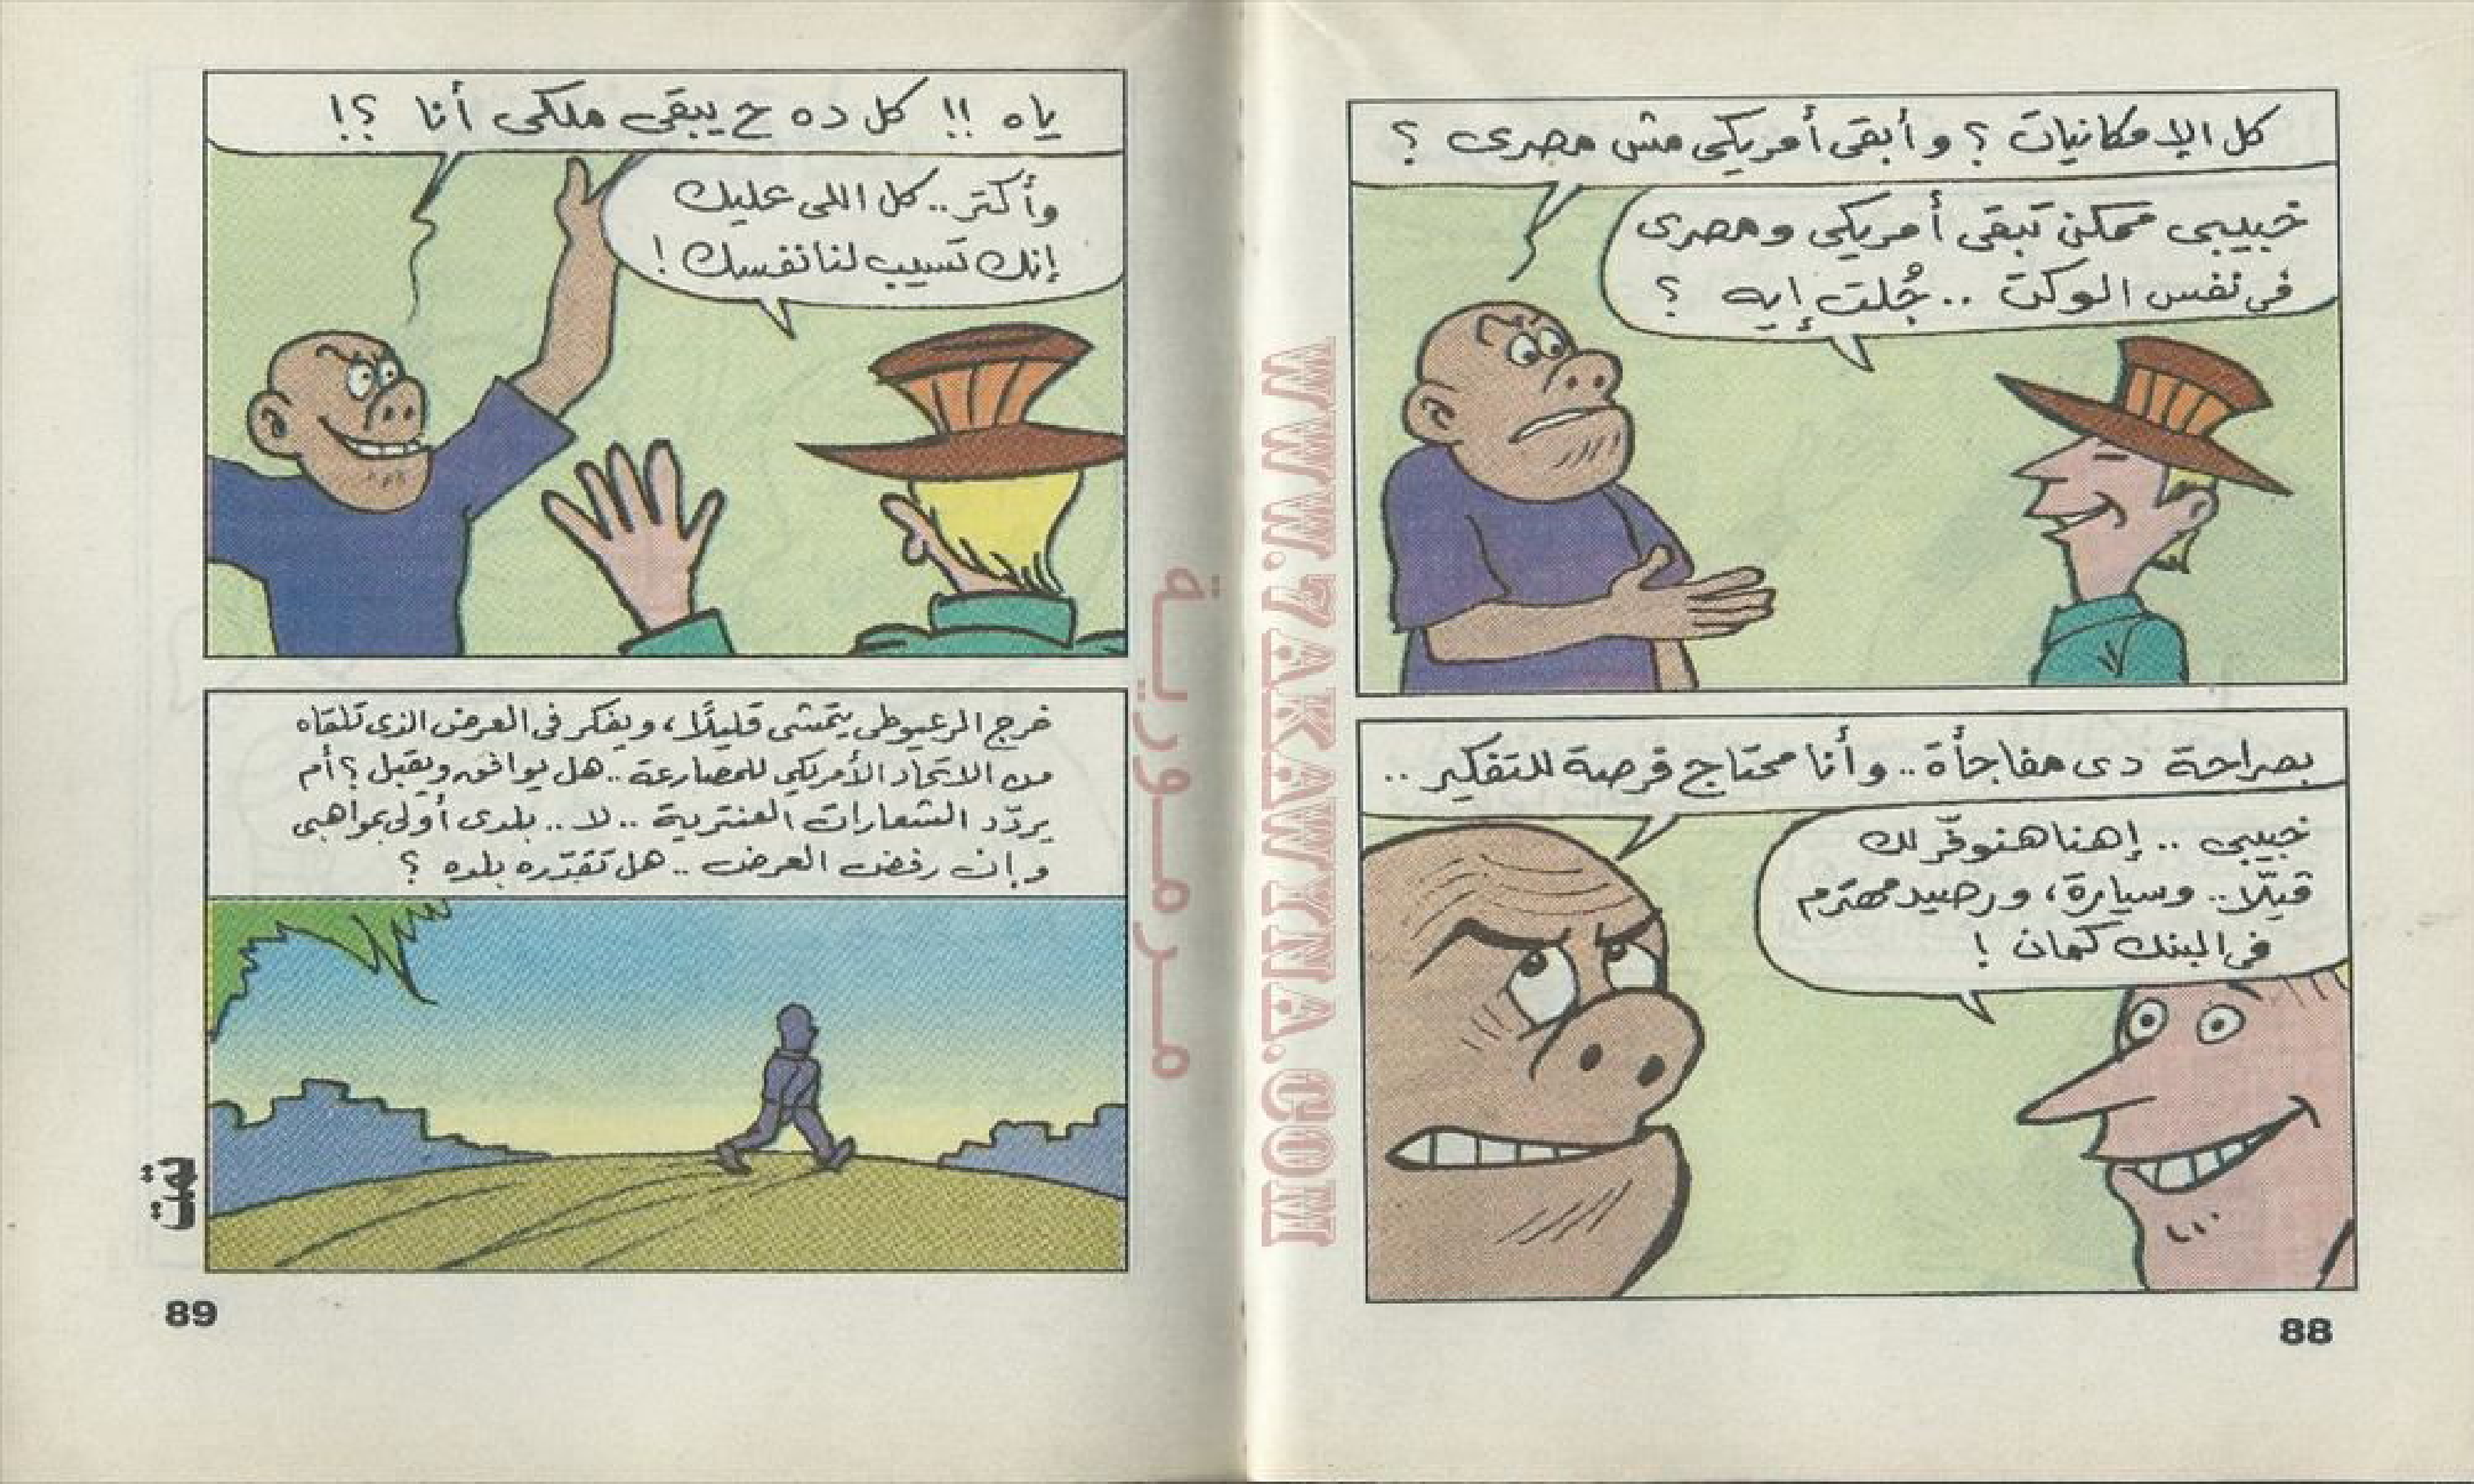 كل الإمكانيات ؟ وأبقى أمريكي مش مصرى ؟
خبيبى ممكن تبقى أمريكي ومصرى
فى نفس الوكت .. جُلت إيه ؟
بصراحة دى مفاجأة .. وأنا محتاج فرصة للتفكير ..
خبيبى .. إهنا هنوفّر لك
ڤيلّا .. وسيارة، ورصيد مهترم
فى البنك كمان !
88
ياه !! كل ده ح يبقى ملكى أنا ؟!
وأكتر .. كل اللى عليك
إنك تسيب لنا نفسك !
خرج الرعيوطى يتمشى قليلًا، ويفكر فى العرض الذى تلقاه
من الاتحاد الأمريكي للمصارعة .. هل يوافق ويقبل ؟ أم
يردّد الشعارات العنترية .. لا .. بلدى أولى بمواهبى
وإن رفض العرض .. هل تقدّره بلده ؟
تمت
89
مرمورية
WWW.7AKAWYNA.COM